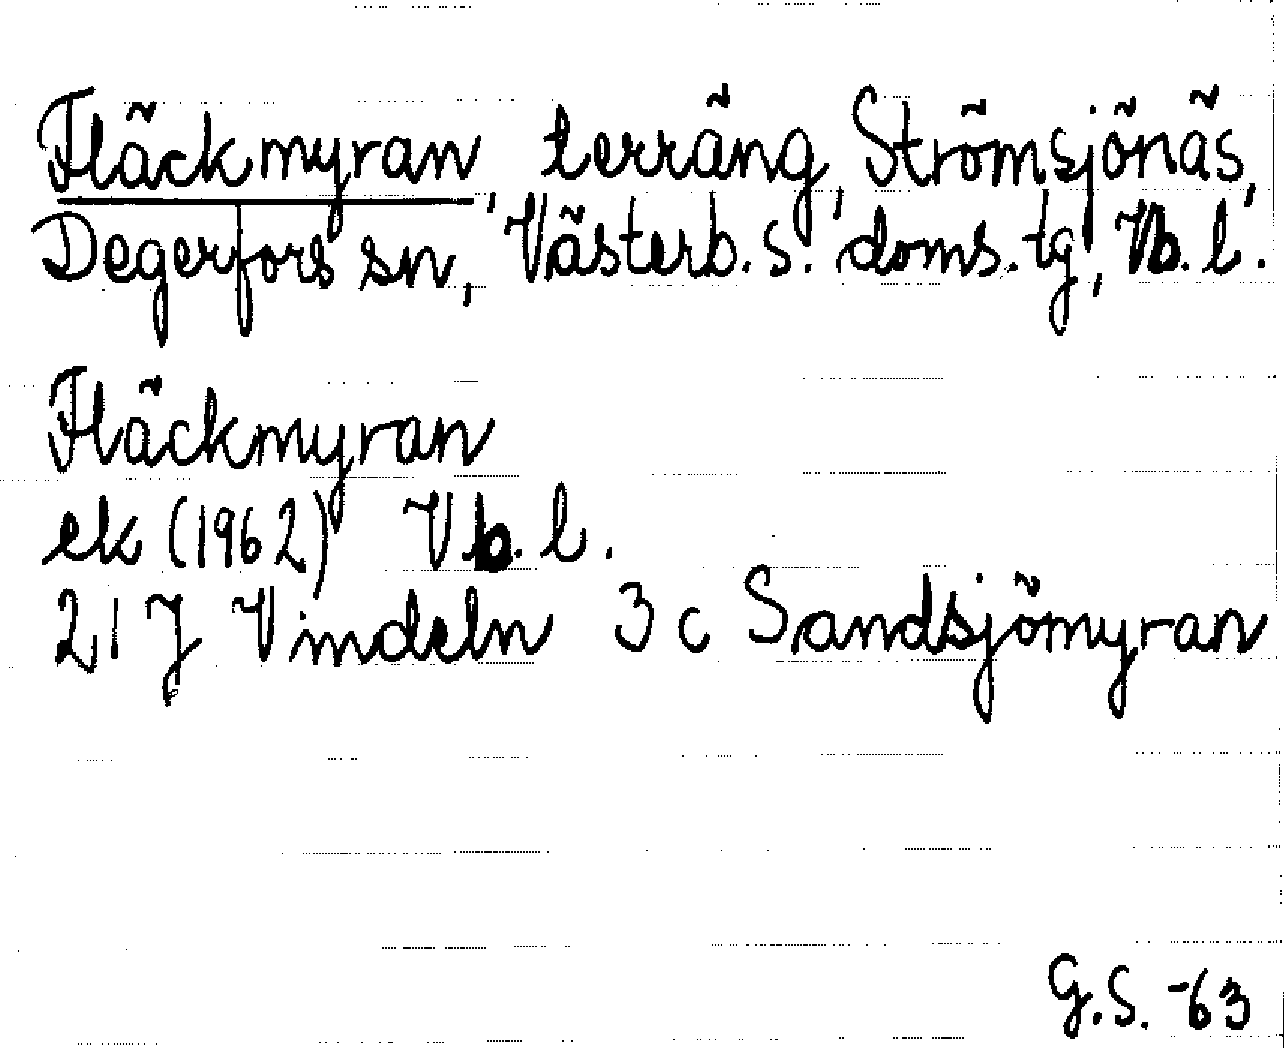 Fläckmyran, terräng, Strömsjönäs,
Degerfors sn, Västerb. s. doms. tg, Vb. l.
Fläckmyran
ek (1962) Vb. l.
21 J Vindeln 3 c Sandsjömyran
G. S. -63